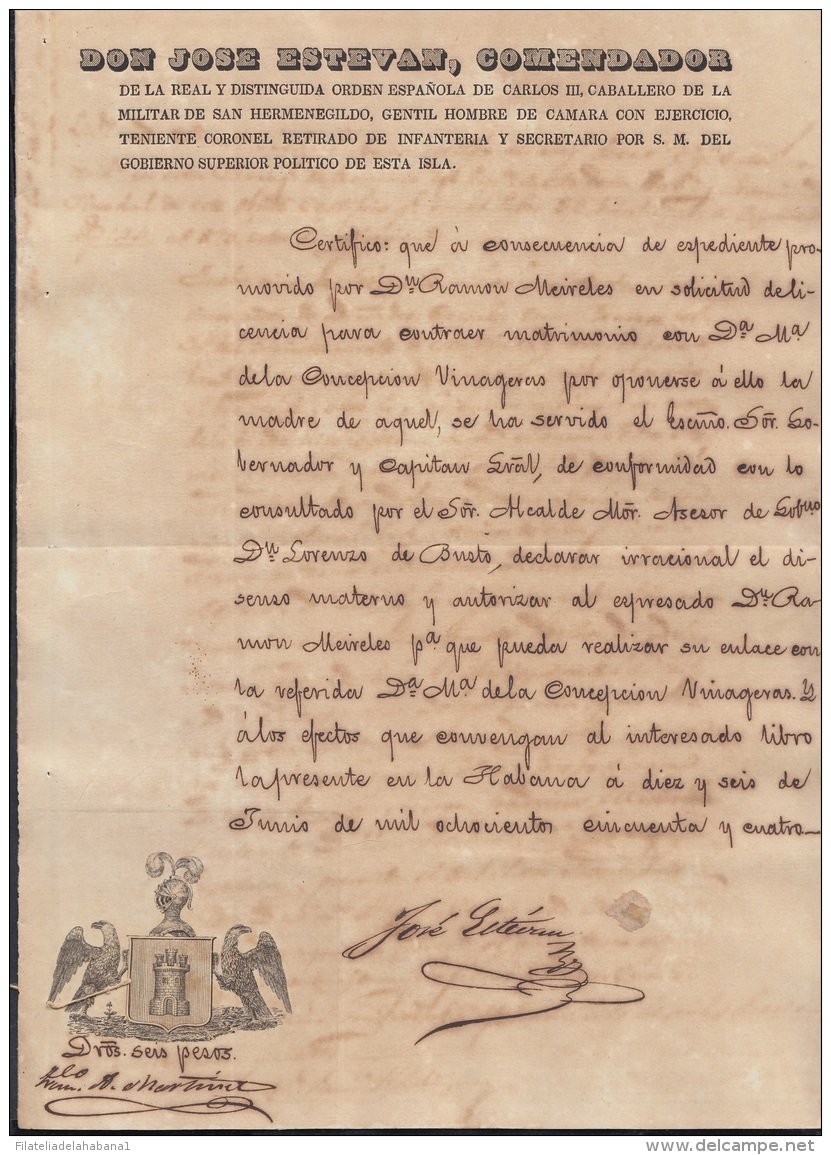 DON JOSE ESTEVAN, COMENDADOR
DE LA REAL Y DISTINGUIDA ORDEN ESPAÑOLA DE CARLOS III, CABALLERO DE LA
MILITAR DE SAN HERMENEGILDO, GENTIL HOMBRE DE CAMARA CON EJERCICIO,
TENIENTE CORONEL RETIRADO DE INFANTERIA Y SECRETARIO POR S. M. DEL
GOBIERNO SUPERIOR POLITICO DE ESTA ISLA.
Certifico: que á consecuencia de espediente pro-
movido por Dn. Ramon Meireles en solicitud de li-
cencia para contraer matrimonio con Da. Ma.
de la Concepcion Vinageras por oponerse á ello la
madre de aquel, se ha servido el Escmo. Sor. Go-
bernador y Capitan Gral, de conformidad con lo
consultado por el Sor. Alcalde Mor. Asesor de Gobno
Dn. Lorenzo de Busto, declarar irracional el di-
senso materno y autorizar al espresado Dn. Ra-
mon Meireles pa. que pueda realizar su enlace con
la referida Da. Ma. de la Concepcion Vinageras. Y
á los efectos que convengan al interesado libro
la presente en la Habana á diez y seis de
Junio de mil ochocientos cincuenta y cuatro—
José Estévan
Dros. seis pesos.
A. Martinez
Filateliadelahabana1
www.delcampe.net